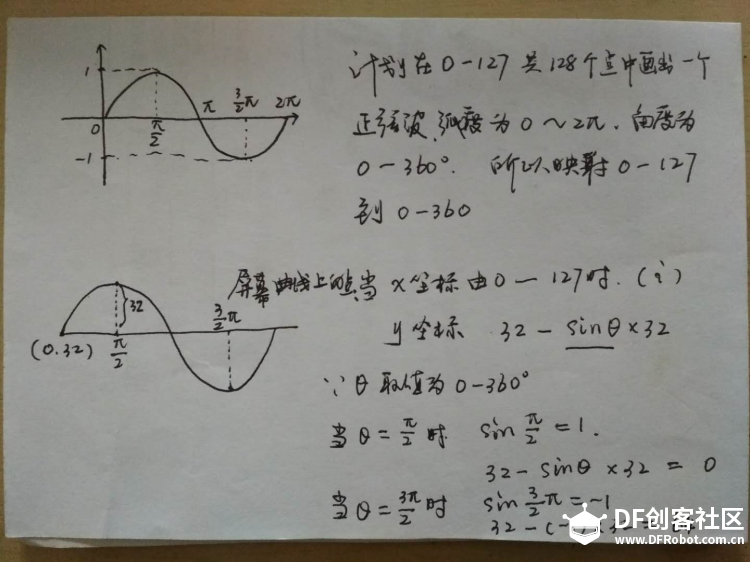 1
0
-1
π/2
π
3/2π
2π
计划在0-127共128个点中画出一个
正弦波,弧度为0~2π.角度为
0-360°. 所以映射0-127
到0-360
屏幕曲线上的点,当x坐标由0-127时.(i)
y坐标 32-sinθ×32
(0.32)
π/2
32
3/2π
∵θ取值为0-360°
当θ=π/2时 sinπ/2=1.
32-sinθ×32=0
当θ=3π/2时 sin3/2π=-1
32-(-
DF创客社区
www.DFRobot.com.cn